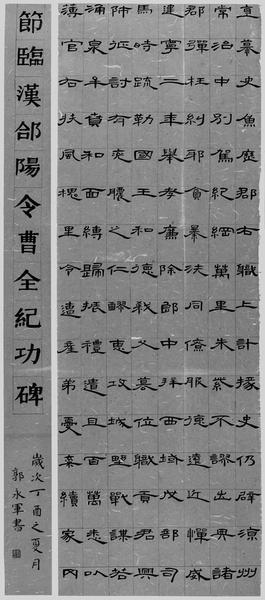 直慕史魚歷郡右職上計掾史仍辟涼州
常治中別駕紀綱萬里朱紫不謬出典諸
郡彈枉糾邪貪暴洗同僚服德遠近憚威
建寧二年舉孝廉除郎中拜西域戊部司
馬時疏勒國王和德弑父篡位職貢君興
師征討有兖膿之仁醪惠攻城野戰謀若
涌泉牟賁和面縛歸振禮遺且百萬悉以
薄官右扶風槐里令遭產弟憂棄續家
節臨漢郃陽令曹全紀功碑
歲次丁酉之夏月
郭永軍書